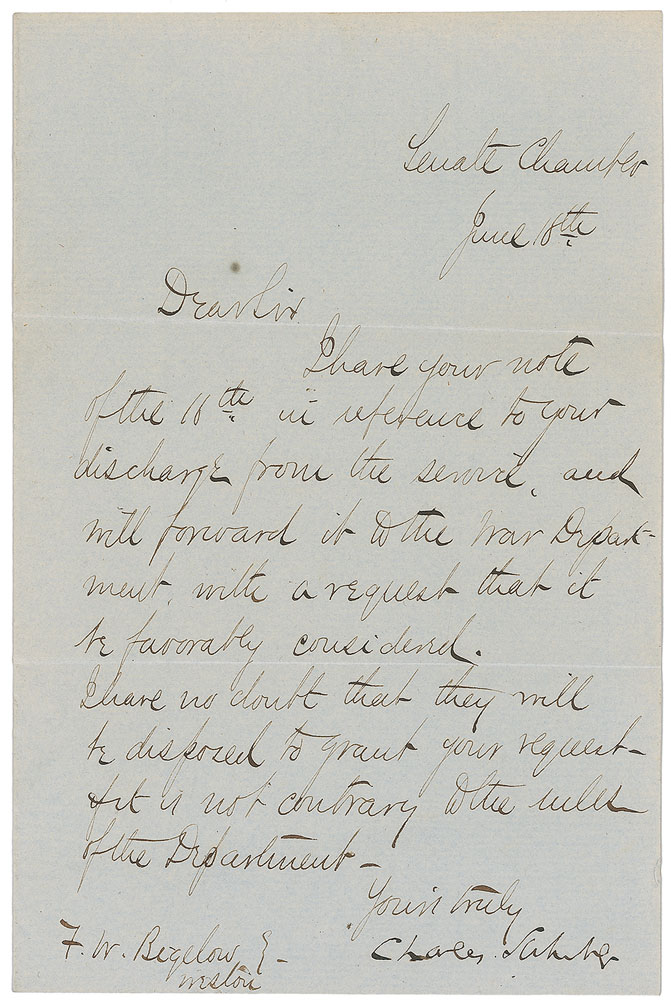 Senate Chamber
June 18th
Dear Sir
I have your note
of the 16th in reference to your
discharge from the service, and
will forward it to the War Depart-
ment, with a request that it
be favorably considered.
I have no doubt that they will
be disposed to grant your request-
if it is not contrary to the rules
of the Department-
Yours truly
Charles Sumner
F. W. Bigelow E-
Weston